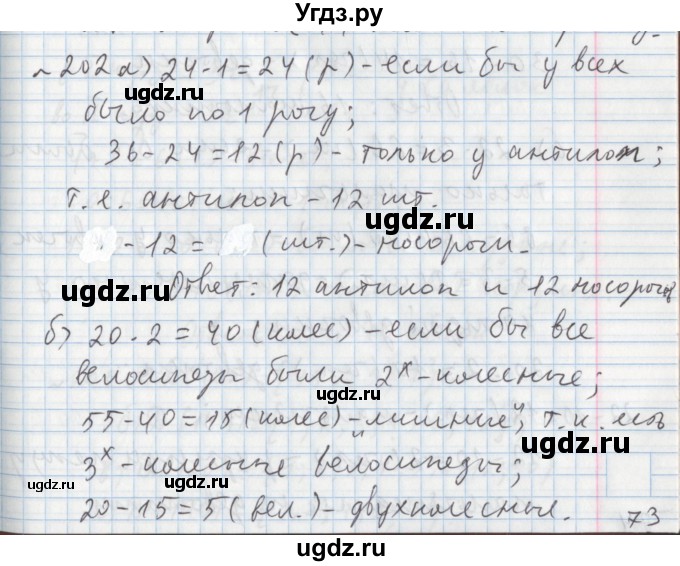 Угдз.ру
№ 202 а) 24·1=24 (р) - если бы у всех
было по 1 рогу;
36-24=12 (р) - только у антилоп;
т.е. антилоп - 12 шт.
- 12 = (шт.) - носороги.
Ответ: 12 антилоп и 12 носорогов
б) 20·2=40 (колес) - если бы все
велосипеды были 2х-колесные;
55-40=15 (колес) - "лишние", т.к. есть
3х-колесные велосипеды;
20-15=5 (вел.) - двухколесные.
73
ugdz.ru
ugdz.ru
ugdz.ru
ugdz.ru
ugdz.ru
ugdz.ru
ugdz.ru
ugdz.ru
ugdz.ru
ugdz.ru